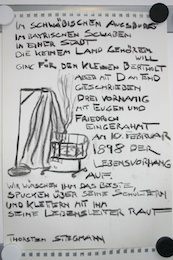 IM SCHWÄBISCHEN AUGSBURG
IM BAYRISCHEN SCHWABEN
IN EINER STADT
DIE KEINEM LAND GEHÖREN
WILL
GING FÜR DEN KLEINEN BERTHOLT
ABER MIT D AM END
GESCHRIEBEN
DREI VORNAMIG
MIT EUGEN UND
FRIEDRICH
EINGERAHMT
AM 10. FEBRUAR
1898 DER
LEBENSVORHANG
AUF.
WIR WÜNSCHEN IHM DAS BESTE,
SPUCKEN ÜBER SEINE SCHULTERN
UND KLETTERN MIT IHM
SEINE LEIDENSLEITER RAUF
THORSTEN STEGMANN